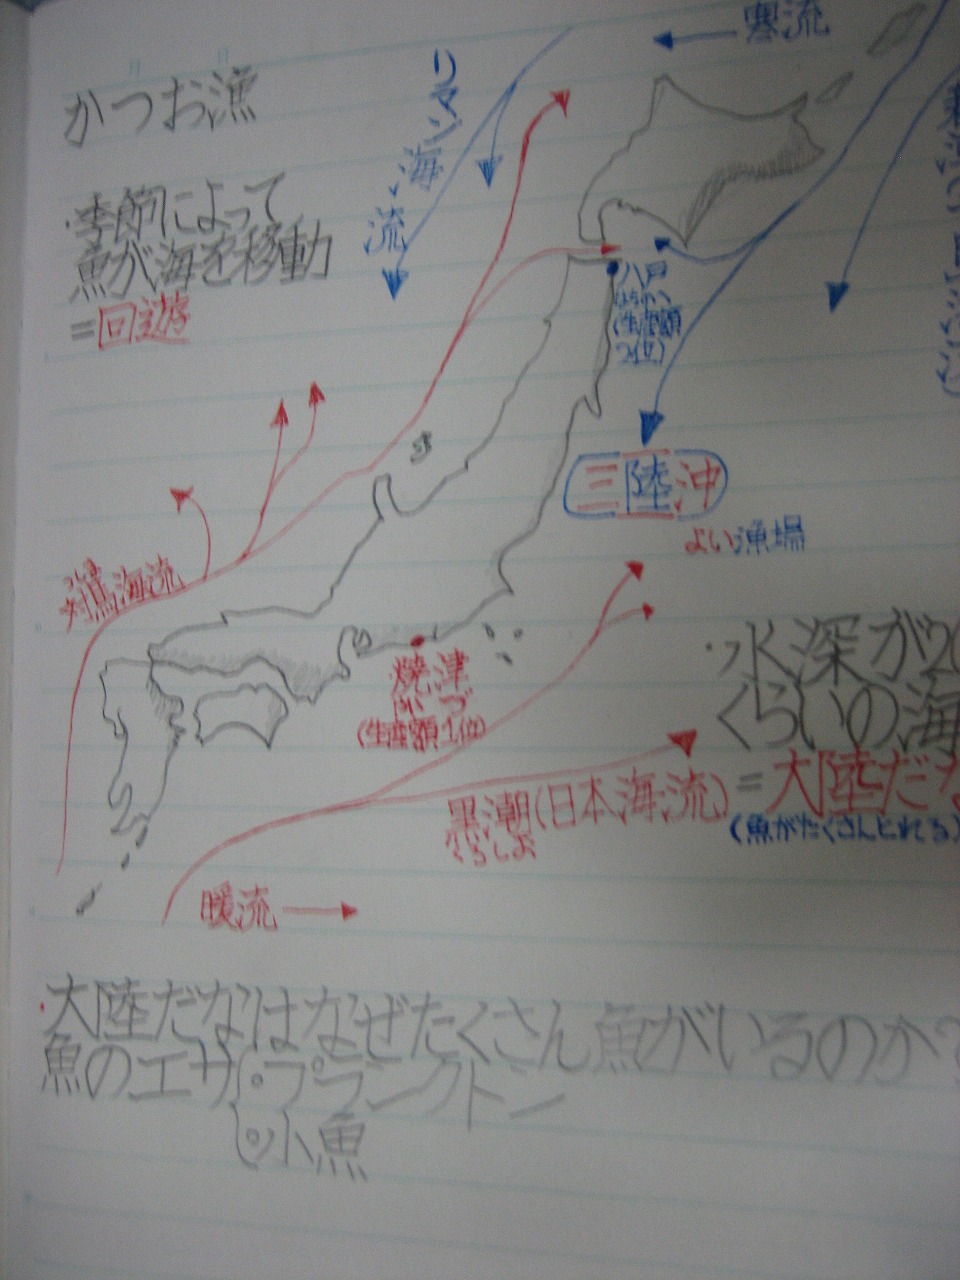 寒流
かつお漁
リマン海流
・季節によって
魚が海を移動
=回遊
八戸
(生産額
2位)
三陸沖
よい漁場
対馬海流
焼津
やいづ
(生産額1位)
・水深が20
くらいの海
黒潮(日本海流)
くろしお
=大陸だな
(魚がたくさんとれる)
暖流
・大陸だなはなぜたくさん魚がいるのか?
魚のエサ ・プランクトン
・小魚